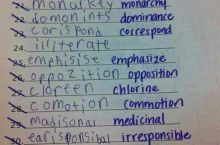 21. monarkey monarchy
22. domonints dominance
23. corispond correspond
24. illiterate
25. emphisise emphasize
26. oppozition opposition
27. cloreen chlorine
28. comotion commotion
29. madisonal medicinal
30. earisponsibal irresponsible